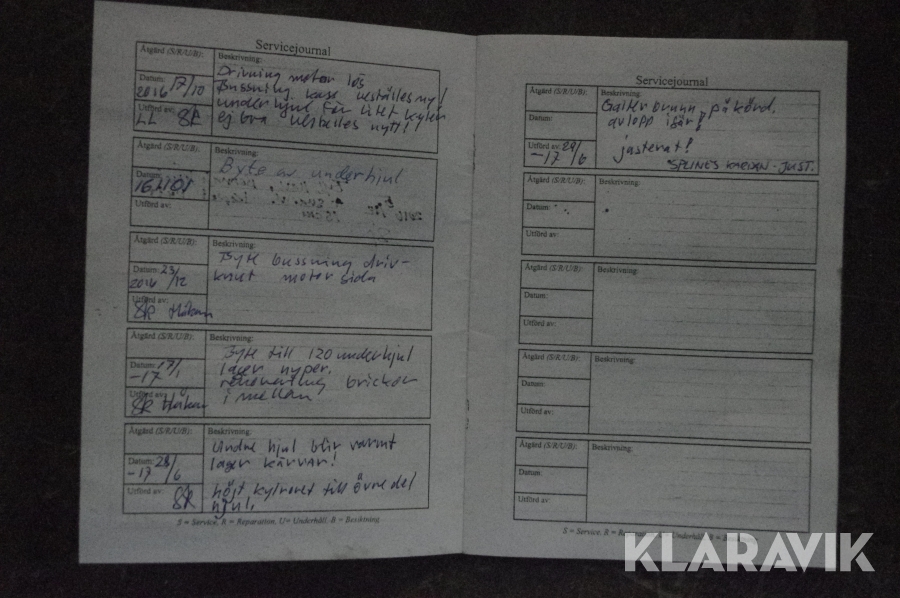 Servicejournal
Åtgärd (S/R/U/B):
Beskrivning:
Drivning motor lös
Datum:
2016 17/10
Bussning kass beställes ny!
underhjul får litet kylrör
Utförd av:
LL SR
ej bra beställes nytt!!
Åtgärd (S/R/U/B):
Beskrivning:
Byte av underhjul
Datum:
Utförd av:
Åtgärd (S/R/U/B):
Beskrivning:
Byte bussning driv-
Datum: 23/12
2016
knut motor sida
Utförd av:
SR Håkan
Åtgärd (S/R/U/B):
Beskrivning:
Byte till 120 underhjul
Datum: 17/1
-17
lager nyper.
brickor
Utförd av:
SR Håkan
i mellan
Åtgärd (S/R/U/B):
Beskrivning:
Undre hjul blir varmt
Datum: 28/6
-17
lager kärvar!
Utförd av:
SR
höjt kylröret till övre del
hjul.
S = Service, R = Reparation, U= Underhåll, B = Besiktning
Servicejournal
Åtgärd (S/R/U/B):
Beskrivning:
påkörd,
Datum:
avlopp isär!
Utförd av: 29/6
-17
justerat!
SPLINES KARDAN - JUST.
Åtgärd (S/R/U/B):
Beskrivning:
Datum:
Utförd av:
Åtgärd (S/R/U/B):
Beskrivning:
Datum:
Utförd av:
Åtgärd (S/R/U/B):
Beskrivning:
Datum:
Utförd av:
Åtgärd (S/R/U/B):
Beskrivning:
Datum:
Utförd av:
S = Service, R = Reparation, U= Underhåll, B = Besiktning
KLARAVIK